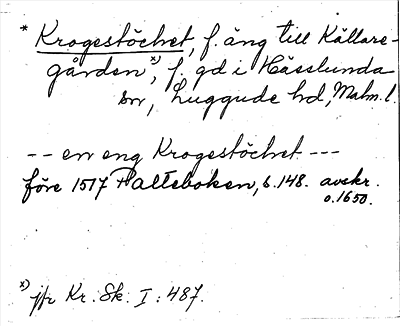 * Krogestöchet, f. äng till Källare-
gården x), f. gd i Hässlunda
sn, Luggude hd, Malm. l.
-- en eng Krogestöchet ---
före 1517 Palteboken, s. 148. avskr.
o. 1650.
x) jfr Kr. Sk. I : 487.